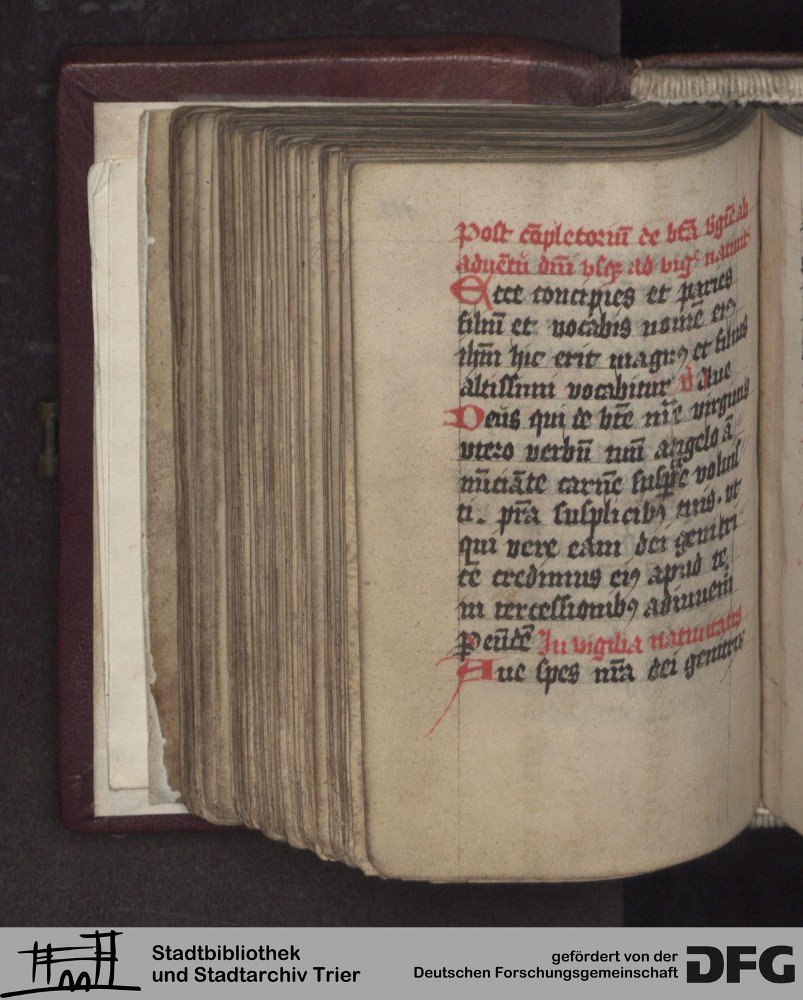 Post cōpletoriū de btā v̄gīe ab
aduētū dn̄i vsqꝫ ad vigꝭ natiuit
Ecce concipies et paries
filiū et vocabis nomē eiꝯ
ihm̄ hic erit magnꝯ et filius
altissimi vocabitur v̄ Aue
Deus qui de bt̄e m̄ie virginis
vtero verbū tuū angelo ā
nūciāte carnē suscipe voluis
ti. pr̄a supplicibꝯ tuis. vt
qui vere eam dei genitri
cē credimus eiꝯ apud te
in tercessionibꝯ adiuuem̄
Per eūdē In vigilia natiuitatis
Aue spes nr̄a dei genitrix
Stadtbibliothek
und Stadtarchiv Trier
gefördert von der
Deutschen Forschungsgemeinschaft
DFG